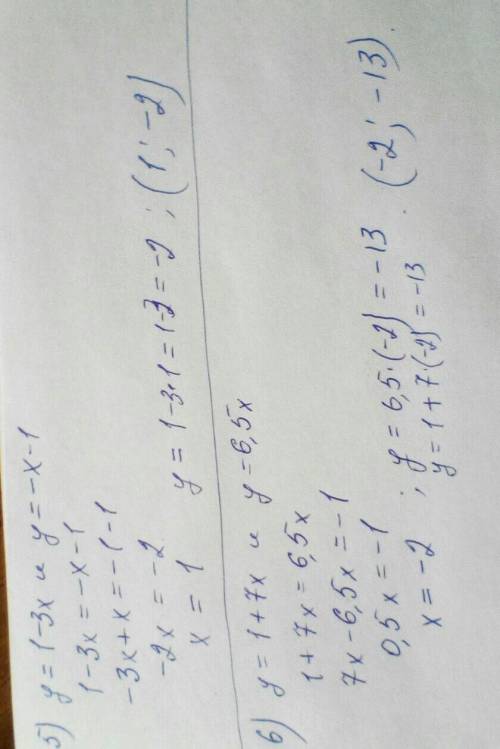 5) y = 1-3x и y = -x-1
1-3x = -x-1
-3x+x = -1-1
-2x = -2
x = 1 y = 1-3·1 = 1-3 = -2 ; (1; -2)
6) y = 1+7x и y = 6,5x
1+7x = 6,5x
7x-6,5x = -1
0,5x = -1
x = -2 ; y = 6,5·(-2) = -13
y = 1+7·(-2) = -13 . (-2; -13).